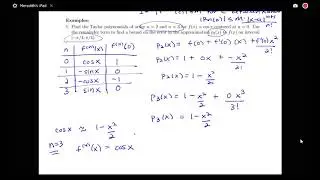 Meredith's iPad
Examples:
9. Find the Taylor polynomials of order n = 2 and n = 3 for f(x) = cos x centered at a = 0. Use
the remainder term to find a bound on the error in the approximation on interval
n f⁽ⁿ⁾(x) f⁽ⁿ⁾(0)
0 cos x 1
1 -sin x 0
2 -cos x -1
3 sin x 0
P₂(x) = f(0) + f'(0)(x) + f''(0) x²/2!
P₂(x) = 1 + 0x + -x²/2!
P₂(x) = 1 - x²/2
P₃(x) = 1 - x²/2 + 0x³/3!
P₃(x) = 1 - x²/2
cos x ≈ 1 - x²/2
n=3 f⁽⁴⁾(x) = cos x